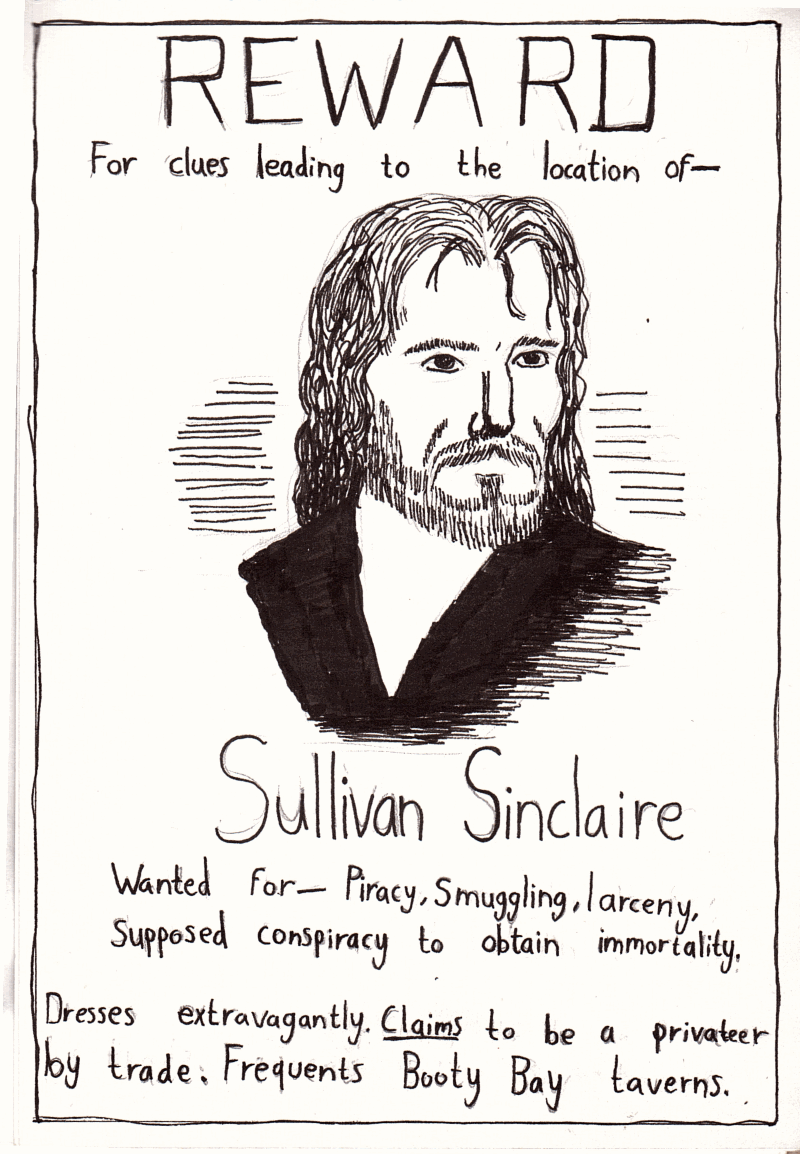 REWARD
For clues leading to the location of—
Sullivan Sinclaire
Wanted for— Piracy, Smuggling, larceny,
Supposed conspiracy to obtain immortality.
Dresses extravagantly. Claims to be a privateer
by trade. Frequents Booty Bay taverns.